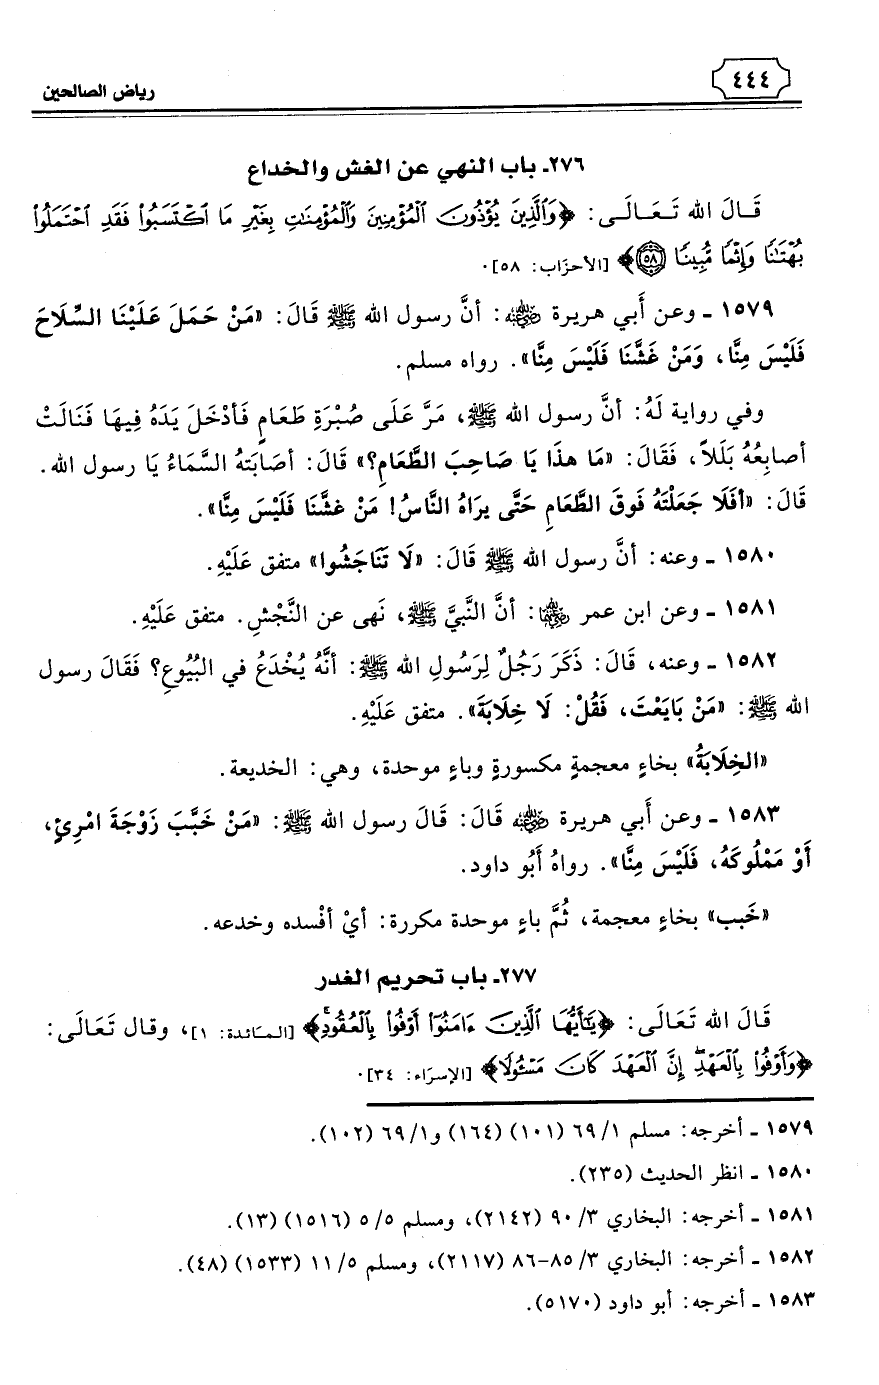 ٤٤٤
رياض الصالحين
٢٧٦ـ باب النهي عن الغش والخداع
قَالَ الله تَعَالَى: ﴿وَالَّذِينَ يُؤْذُونَ الْمُؤْمِنِينَ وَالْمُؤْمِنَاتِ بِغَيْرِ مَا اكْتَسَبُوا فَقَدِ احْتَمَلُوا
بُهْتَانًا وَإِثْمًا مُّبِينًا ۝٥٨﴾ [الأحزَاب: ٥٨].
١٥٧٩ ـ وعن أَبي هريرة رضي الله عنه: أنَّ رسول الله ﷺ قَالَ: «مَنْ حَمَلَ عَلَيْنَا السِّلَاحَ
فَلَيْسَ مِنَّا، وَمَنْ غَشَّنَا فَلَيْسَ مِنَّا». رواه مسلم.
وفي رواية لَهُ: أنَّ رسول الله ﷺ، مَرَّ عَلَى صُبْرَةِ طَعَامٍ فَأدْخَلَ يَدَهُ فِيهَا فَنَالَتْ
أصابِعُهُ بَلَلاً، فَقَالَ: «مَا هذَا يَا صَاحِبَ الطَّعَامِ؟» قَالَ: أصَابَتهُ السَّمَاءُ يَا رسول الله.
قَالَ: «أفَلَا جَعَلْتَهُ فَوقَ الطَّعَامِ حَتَّى يرَاهُ النَّاسُ! مَنْ غشَّنَا فَلَيْسَ مِنَّا».
١٥٨٠ ـ وعنه: أنَّ رسول الله ﷺ قَالَ: «لَا تَنَاجَشُوا» متفق عَلَيْهِ.
١٥٨١ ـ وعن ابن عمر رضي الله عنهما: أنَّ النَّبيَّ ﷺ، نَهى عن النَّجْشِ. متفق عَلَيْهِ.
١٥٨٢ ـ وعنه، قَالَ: ذَكَرَ رَجُلٌ لِرَسُولِ الله ﷺ: أنَّهُ يُخْدَعُ في البُيُوعِ؟ فَقَالَ رسول
الله ﷺ: «مَنْ بَايَعْتَ، فَقُلْ: لَا خِلَابَةَ». متفق عَلَيْهِ.
«الخِلَابَةُ» بخاءٍ معجمةٍ مكسورةٍ وباءٍ موحدة، وهي: الخديعة.
١٥٨٣ ـ وعن أَبي هريرة رضي الله عنه قَالَ: قَالَ رسول الله ﷺ: «مَنْ خَبَّبَ زَوْجَةَ امْرِئٍ،
أَوْ مَمْلُوكَهُ، فَلَيْسَ مِنَّا». رواهُ أَبُو داود.
«خَبب» بخاءٍ معجمة، ثُمَّ باءٍ موحدة مكررة: أيْ أفْسده وخدعه.
٢٧٧ـ باب تحريم الغدر
قَالَ الله تَعَالَى: ﴿يَا أَيُّهَا الَّذِينَ ءَامَنُوا أَوْفُوا بِالْعُقُودِ﴾ [المَائدة: ١]، وقال تَعَالَى:
﴿وَأَوْفُوا بِالْعَهْدِ إِنَّ الْعَهْدَ كَانَ مَسْئُولًا﴾ [الإسرَاء: ٣٤].
١٥٧٩ ـ أخرجه: مسلم ١/ ٦٩ (١٠١) (١٦٤) و١/ ٦٩ (١٠٢).
١٥٨٠ ـ انظر الحديث (٢٣٥).
١٥٨١ ـ أخرجه: البخاري ٣/ ٩٠ (٢١٤٢)، ومسلم ٥/ ٥ (١٥١٦) (١٣).
١٥٨٢ ـ أخرجه: البخاري ٣/ ٨٥-٨٦ (٢١١٧)، ومسلم ٥/ ١١ (١٥٣٣) (٤٨).
١٥٨٣ ـ أخرجه: أبو داود (٥١٧٠).